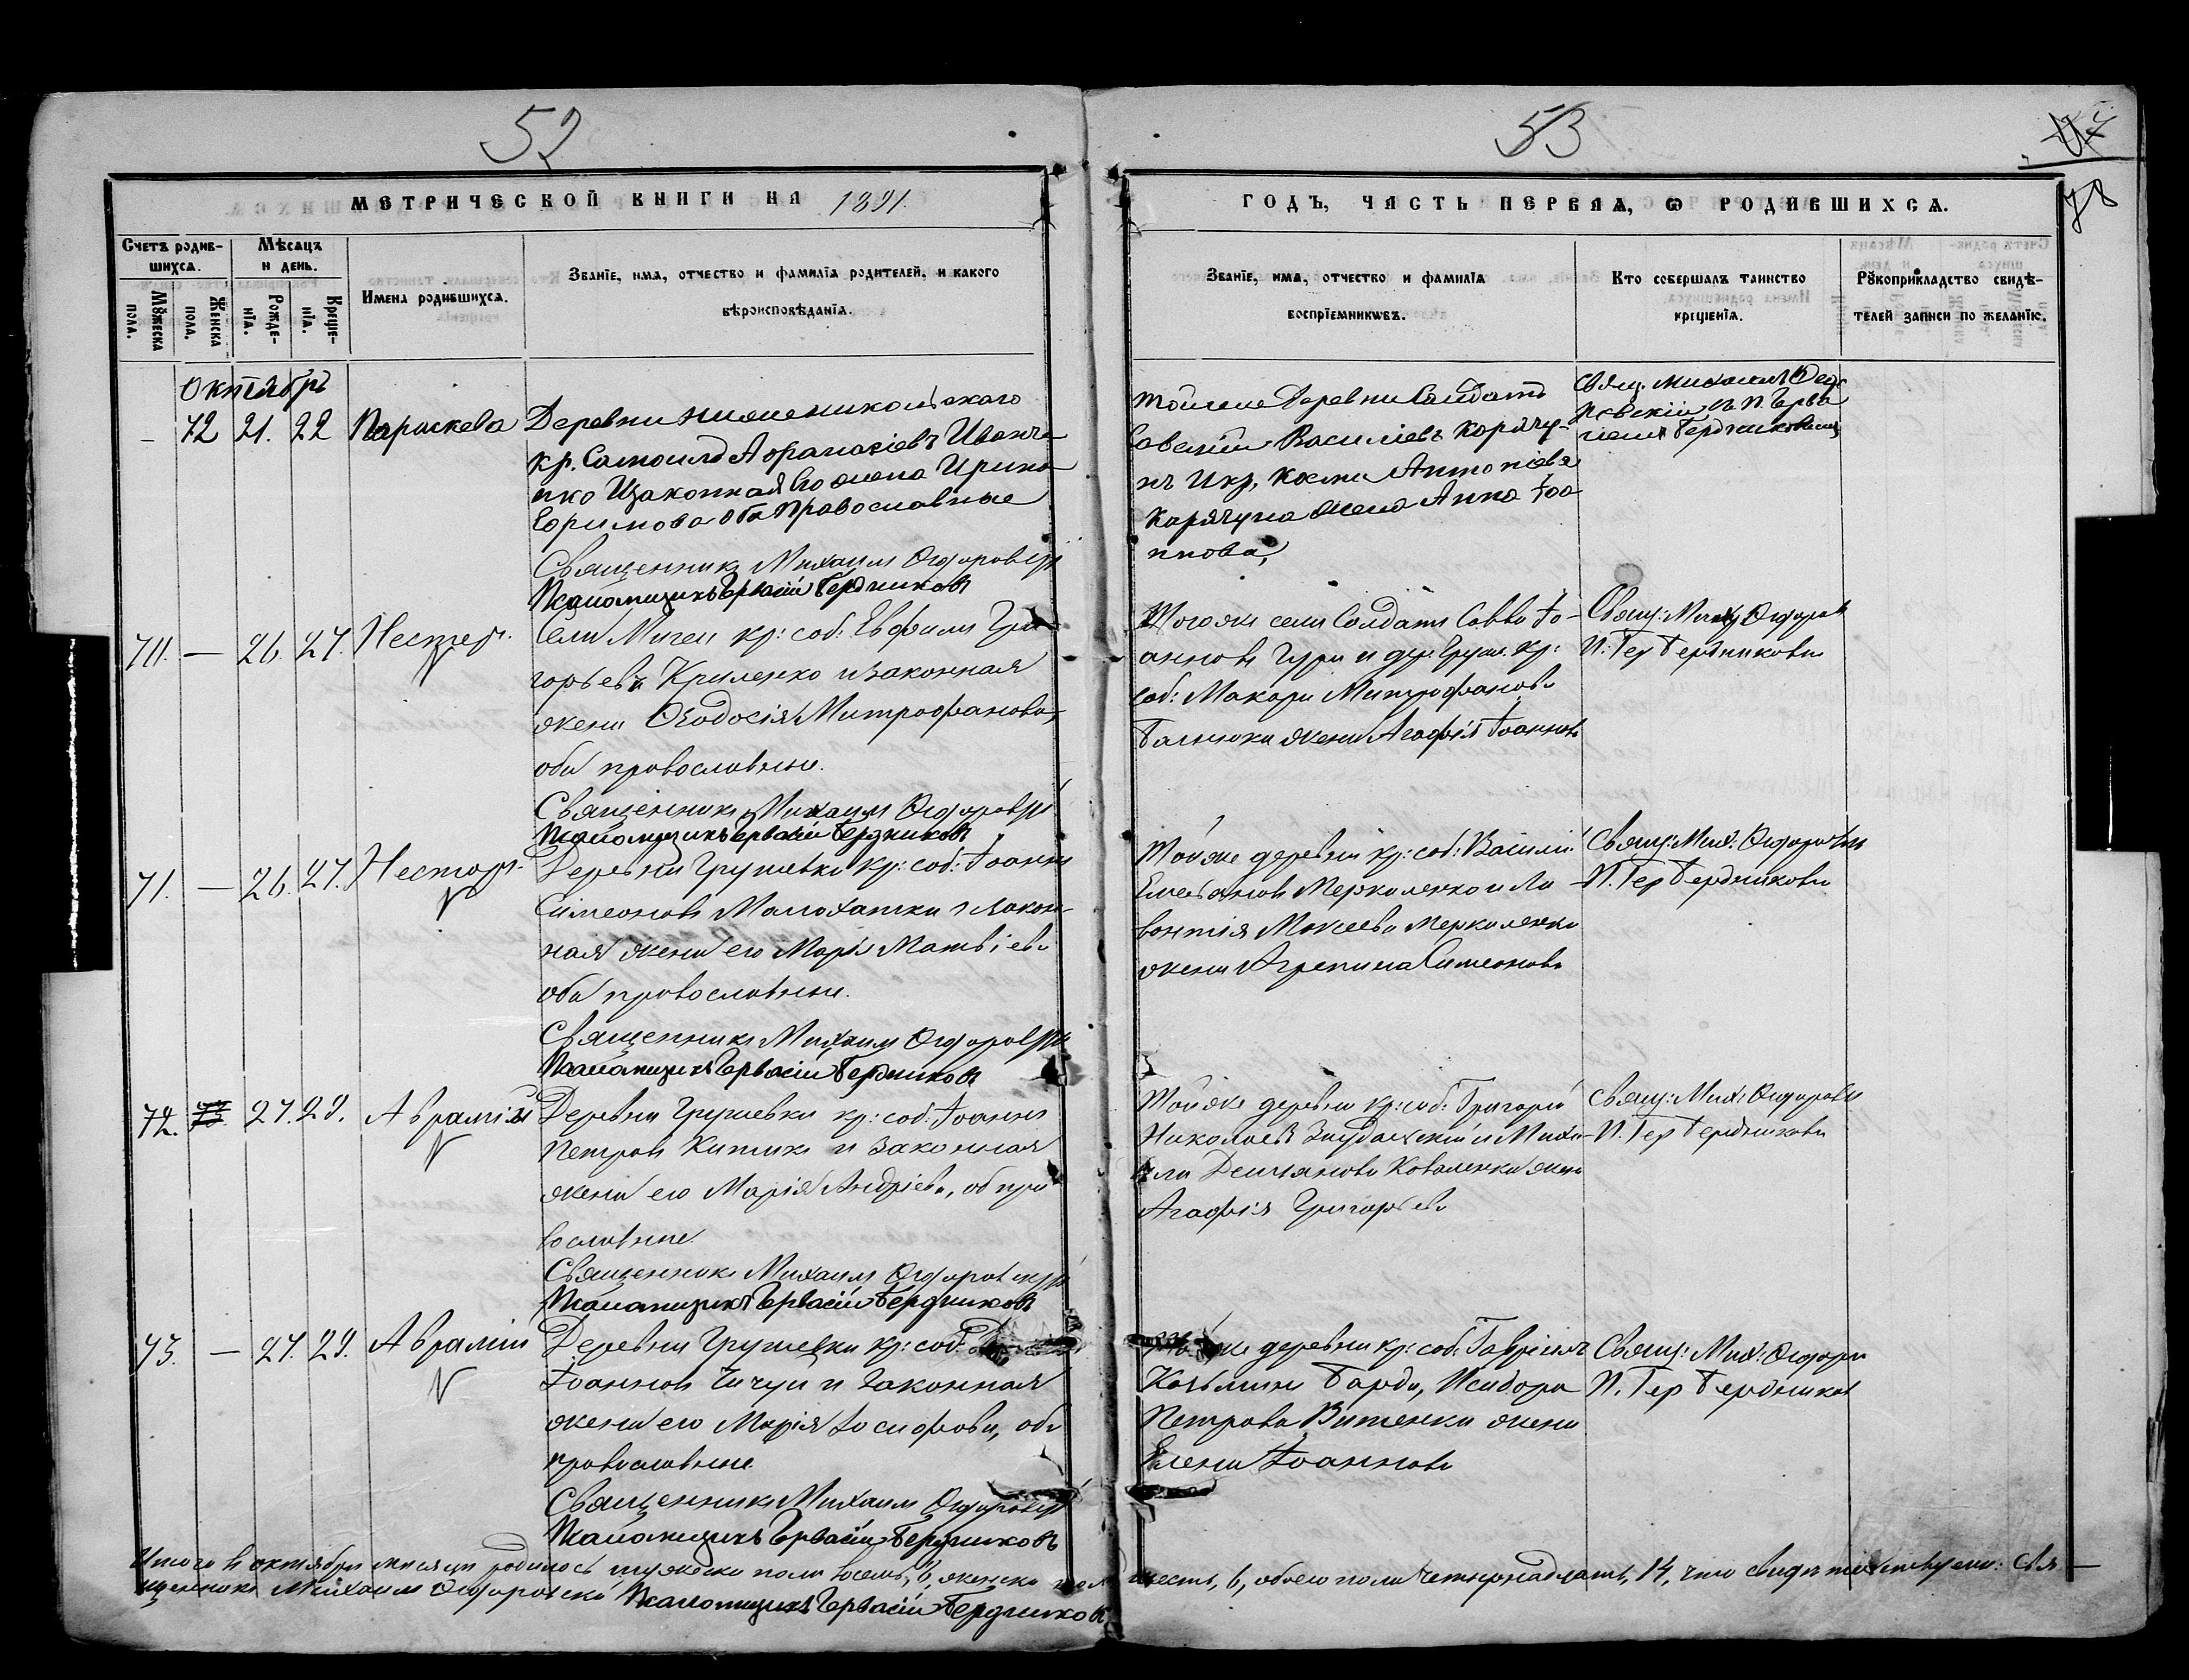 52
53
78
МЕТРИЧЕСКОЙ КНИГИ НА 1891
ГОДЪ, ЧАСТЬ ПЕРВАЯ, Ѡ РОДИВШИХСЯ.
Счетъ родив-
шихся.
Мѣсяцъ
и день.
Мꙋжеска
пола.
Женска
пола.
Рожде-
нїя.
Креще-
нїя.
Имена родившихся.
Званїе, имя, отчество и фамилїя родителей, и какого
вѣроисповѣданїя.
Званїе, имя, отчество и фамилїя
воспрїемникѡвъ.
Кто совершалъ таинство
крещенїя.
Рꙋкоприкладство свидѣ-
телей записи по желанїю.
Октябрь
– 72 21. 22 Параскева
Деревни
кр. Самоилъ Афанасіевъ Иванче-
нко Изаконная Его жена Ирина
Ефимова Оба Православные
Священникъ Михаилъ
Псаломщикъ Гервасій Бердниковъ
тойже Деревни Салдатъ
Савелій Василіевъ Корячу-
нъ Икр. Косма Антоніева
Карячуна жена Анна Іоа
ннова,
Свящ. Михаилъ
П. Герва
сіемъ Бердниковымъ
70. — 26. 27. Нестор.
Села кр: соб: Евфимъ Гри-
горьевъ Криленко и законная
жена Ѳеодосія Митрофанова,
оба православные.
Священникъ Михаилъ
Псаломщикъ Гервасій Бердниковъ
Тогоже села Солдатъ Савва Іо-
анновъ и дер. Груш. кр:
соб: Макара Митрофанова
жена Агафія Іоаннова
Свящ: Мих:
П. Гер Бердниковъ
71. — 26. 27. Нестор.
Деревни Грушевки кр: соб: Іоаннъ
Симеоновъ Малохатка и закон-
ная жена его Марія Матвіева
оба православные.
Священникъ Михаилъ
Псаломщикъ Гервасій Бердниковъ
Тойже деревни кр: соб: Василій
Емельяновъ Меркуленко и Ле-
вонтія Моисеева Меркуленка
жена Агрепина Симеонова
Свящ: Мих:
П. Гер Бердниковъ
72. 27. 29. Аврамій
Деревни Грушевки кр: соб: Іоаннъ
Петровъ Китикъ и законная
жена его Марія Андріева, об пра
вославные
Священникъ Михаилъ
Псаломщикъ Гервасій Бердниковъ
Тойже деревни кр: соб: Григорій
Николаевъ и Миха-
ила Демьянова Коваленка жена
Агафія Григорьева
Свящ: Мих:
П. Гер Бердниковъ
73. — 27. 29. Аврамій
Деревни Грушевки кр: соб:
Іоанновъ Чичуп и законная
жена его Марія Іосифова, оба
православные
Священникъ Михаилъ
Псаломщикъ Гервасій Бердниковъ
деревни кр: соб: Гавріилъ
Козьминъ Барда, Исидора
Петрова Витенка жена
Елена Іоаннова
Свящ: Мих:
П. Гер Бердников
Итого в октябри месяце родилось мужеска пола восемь, 8, женска шесть, 6, обоего пола четырнадцать, 14, что свидѣтельствуемъ: Свя-
щенникъ Михаилъ Псаломщикъ Гервасій Бердниковъ